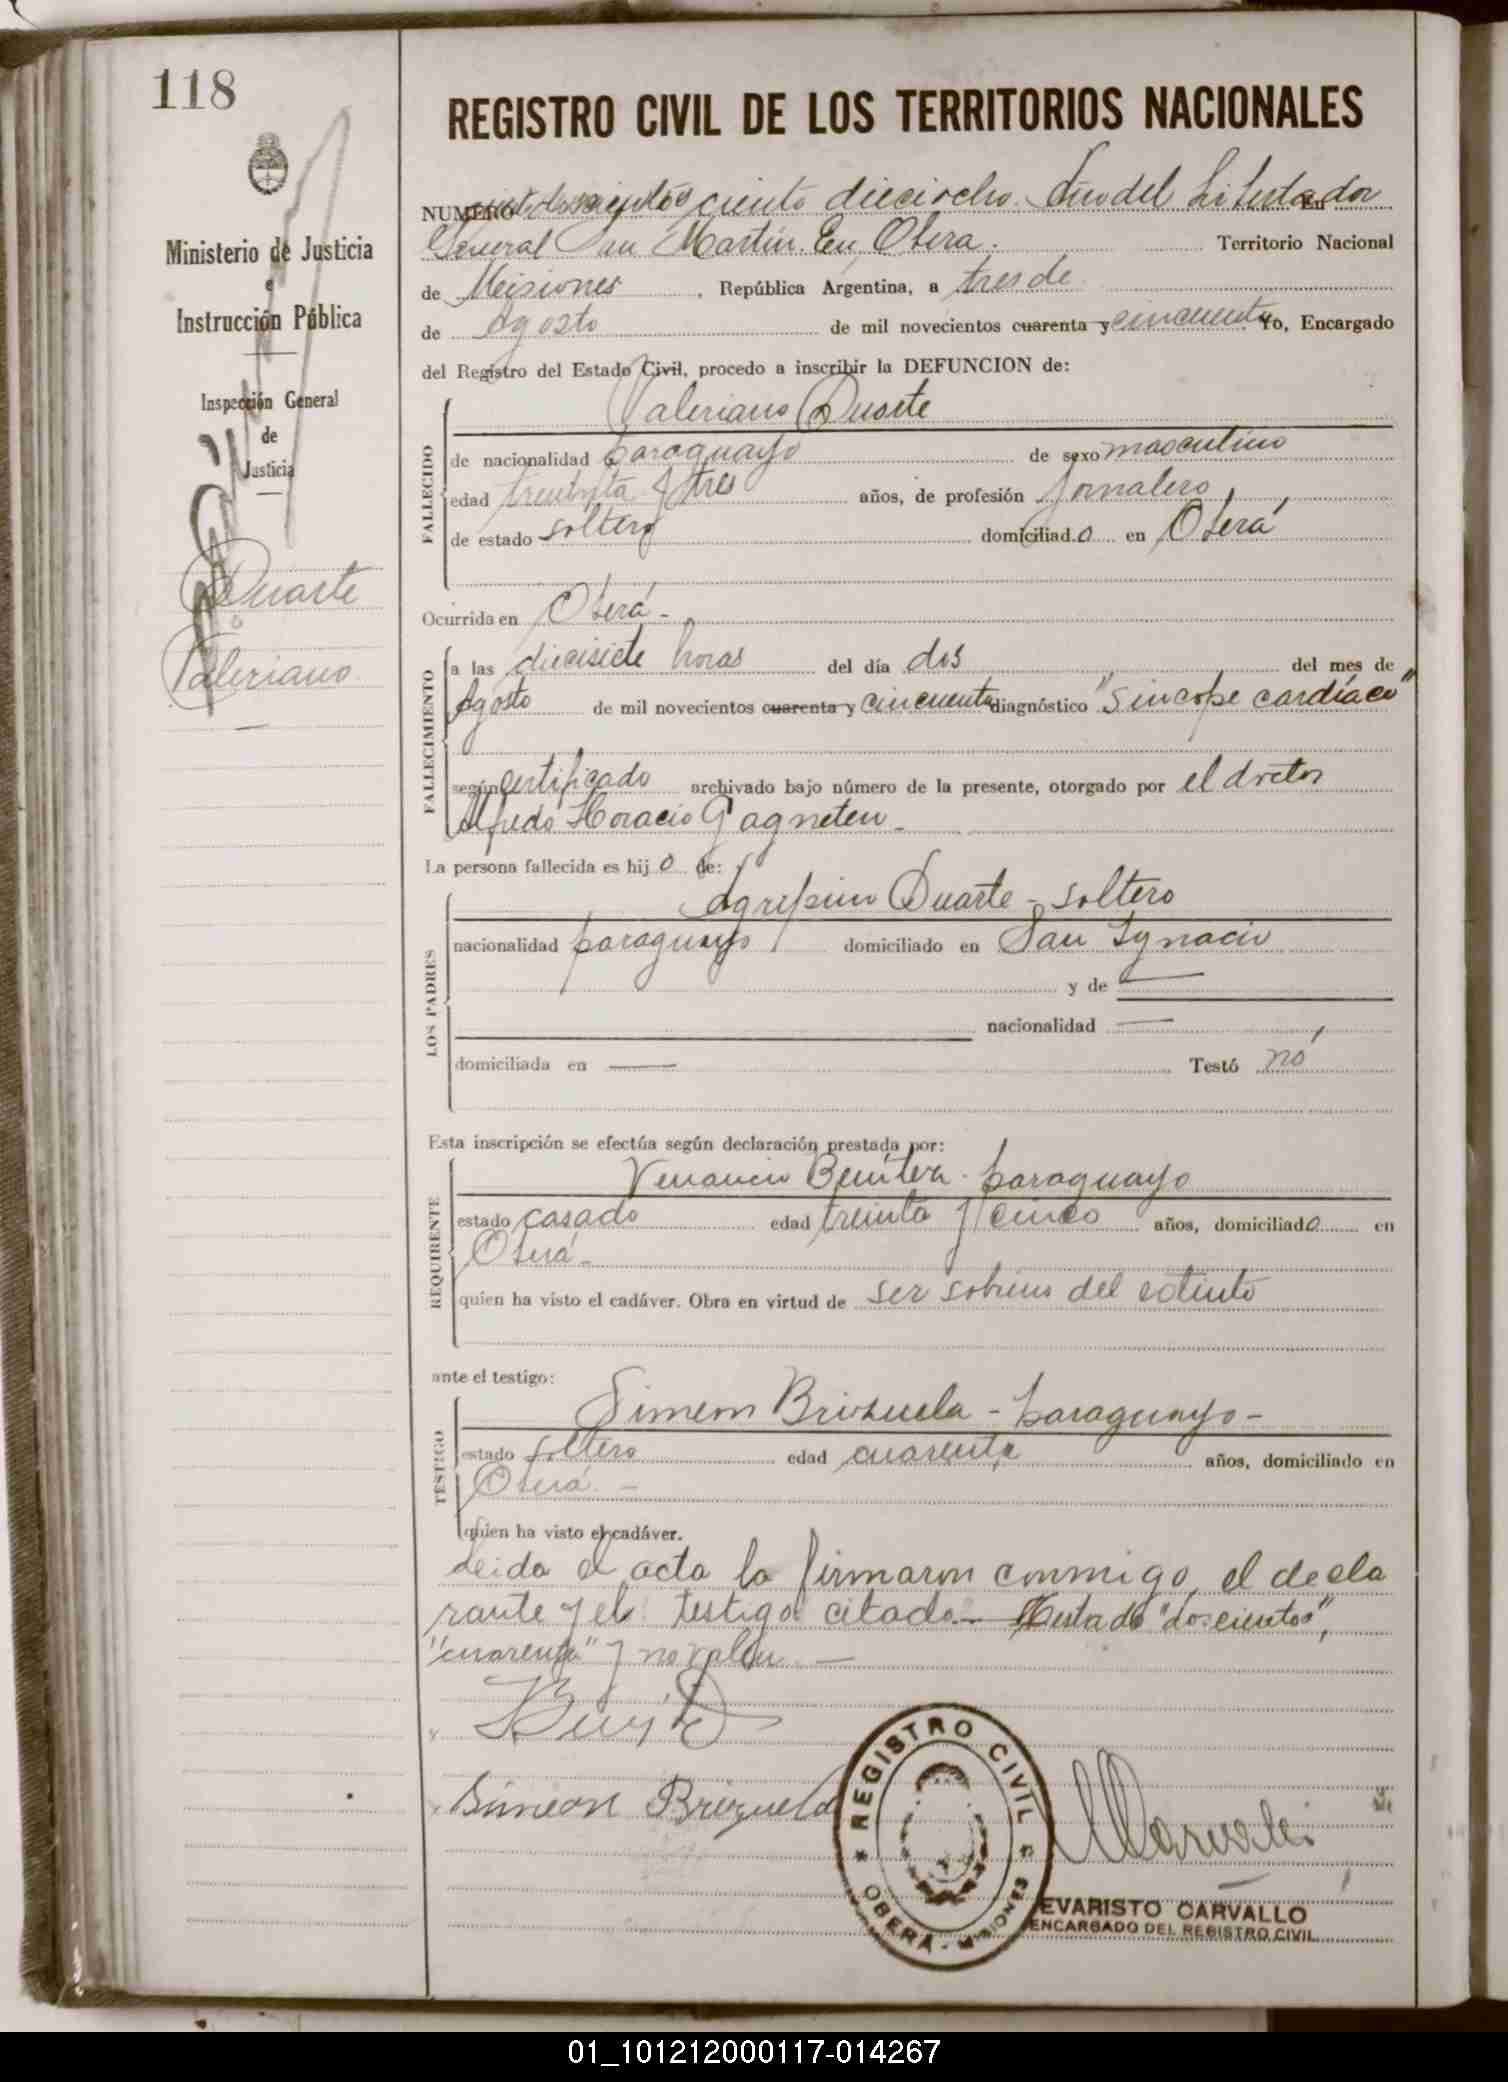 118
REGISTRO CIVIL DE LOS TERRITORIOS NACIONALES
Ministerio de Justicia
e
Instrucción Pública
Inspección General
de
Justicia
Duarte
Valeriano
NUMERO doscientos ciento dieciocho. Año del Libertador En
General San Martín. En Obera. Territorio Nacional
de Misiones, República Argentina, a tres de
de Agosto de mil novecientos cuarenta y cincuenta Yo, Encargado
del Registro del Estado Civil, procedo a inscribir la DEFUNCION de:
FALLECIDO
Valeriano Duarte
de nacionalidad paraguayo de sexo masculino
edad treinta y tres años, de profesión Jornalero,
de estado soltero domiciliad o en Oberá
Ocurrida en Oberá -
FALLECIMIENTO
a las diecisiete horas del día dos del mes de
Agosto de mil novecientos cuarenta y cincuenta diagnóstico "Sincope cardíaco"
según certificado archivado bajo número de la presente, otorgado por el doctor
Alfredo Horacio Gagneten -
La persona fallecida es hij o de:
LOS PADRES
Agripino Duarte - soltero
nacionalidad paraguayo domiciliado en San Ygnacio
y de —
nacionalidad —
domiciliada en — Testó no
Esta inscripción se efectúa según declaración prestada por:
REQUIRENTE
Venancio Benítez - paraguayo
estado casado edad treinta y cinco años, domiciliado en
Oberá -
quien ha visto el cadáver. Obra en virtud de ser sobrino del extinto
ante el testigo:
TESTIGO
Simeon Brizuela - paraguayo -
estado soltero edad cuarenta años, domiciliado en
Oberá. -
quien ha visto el cadáver.
Leida el acta la firmaron conmigo, el decla
rante y el testigo citado. - Testado "doscientos",
"cuarenta" y no valen. —
Simeon Brizuela
REGISTRO CIVIL
OBERA - MISIONES
EVARISTO CARVALLO
ENCARGADO DEL REGISTRO CIVIL
01_101212000117-014267